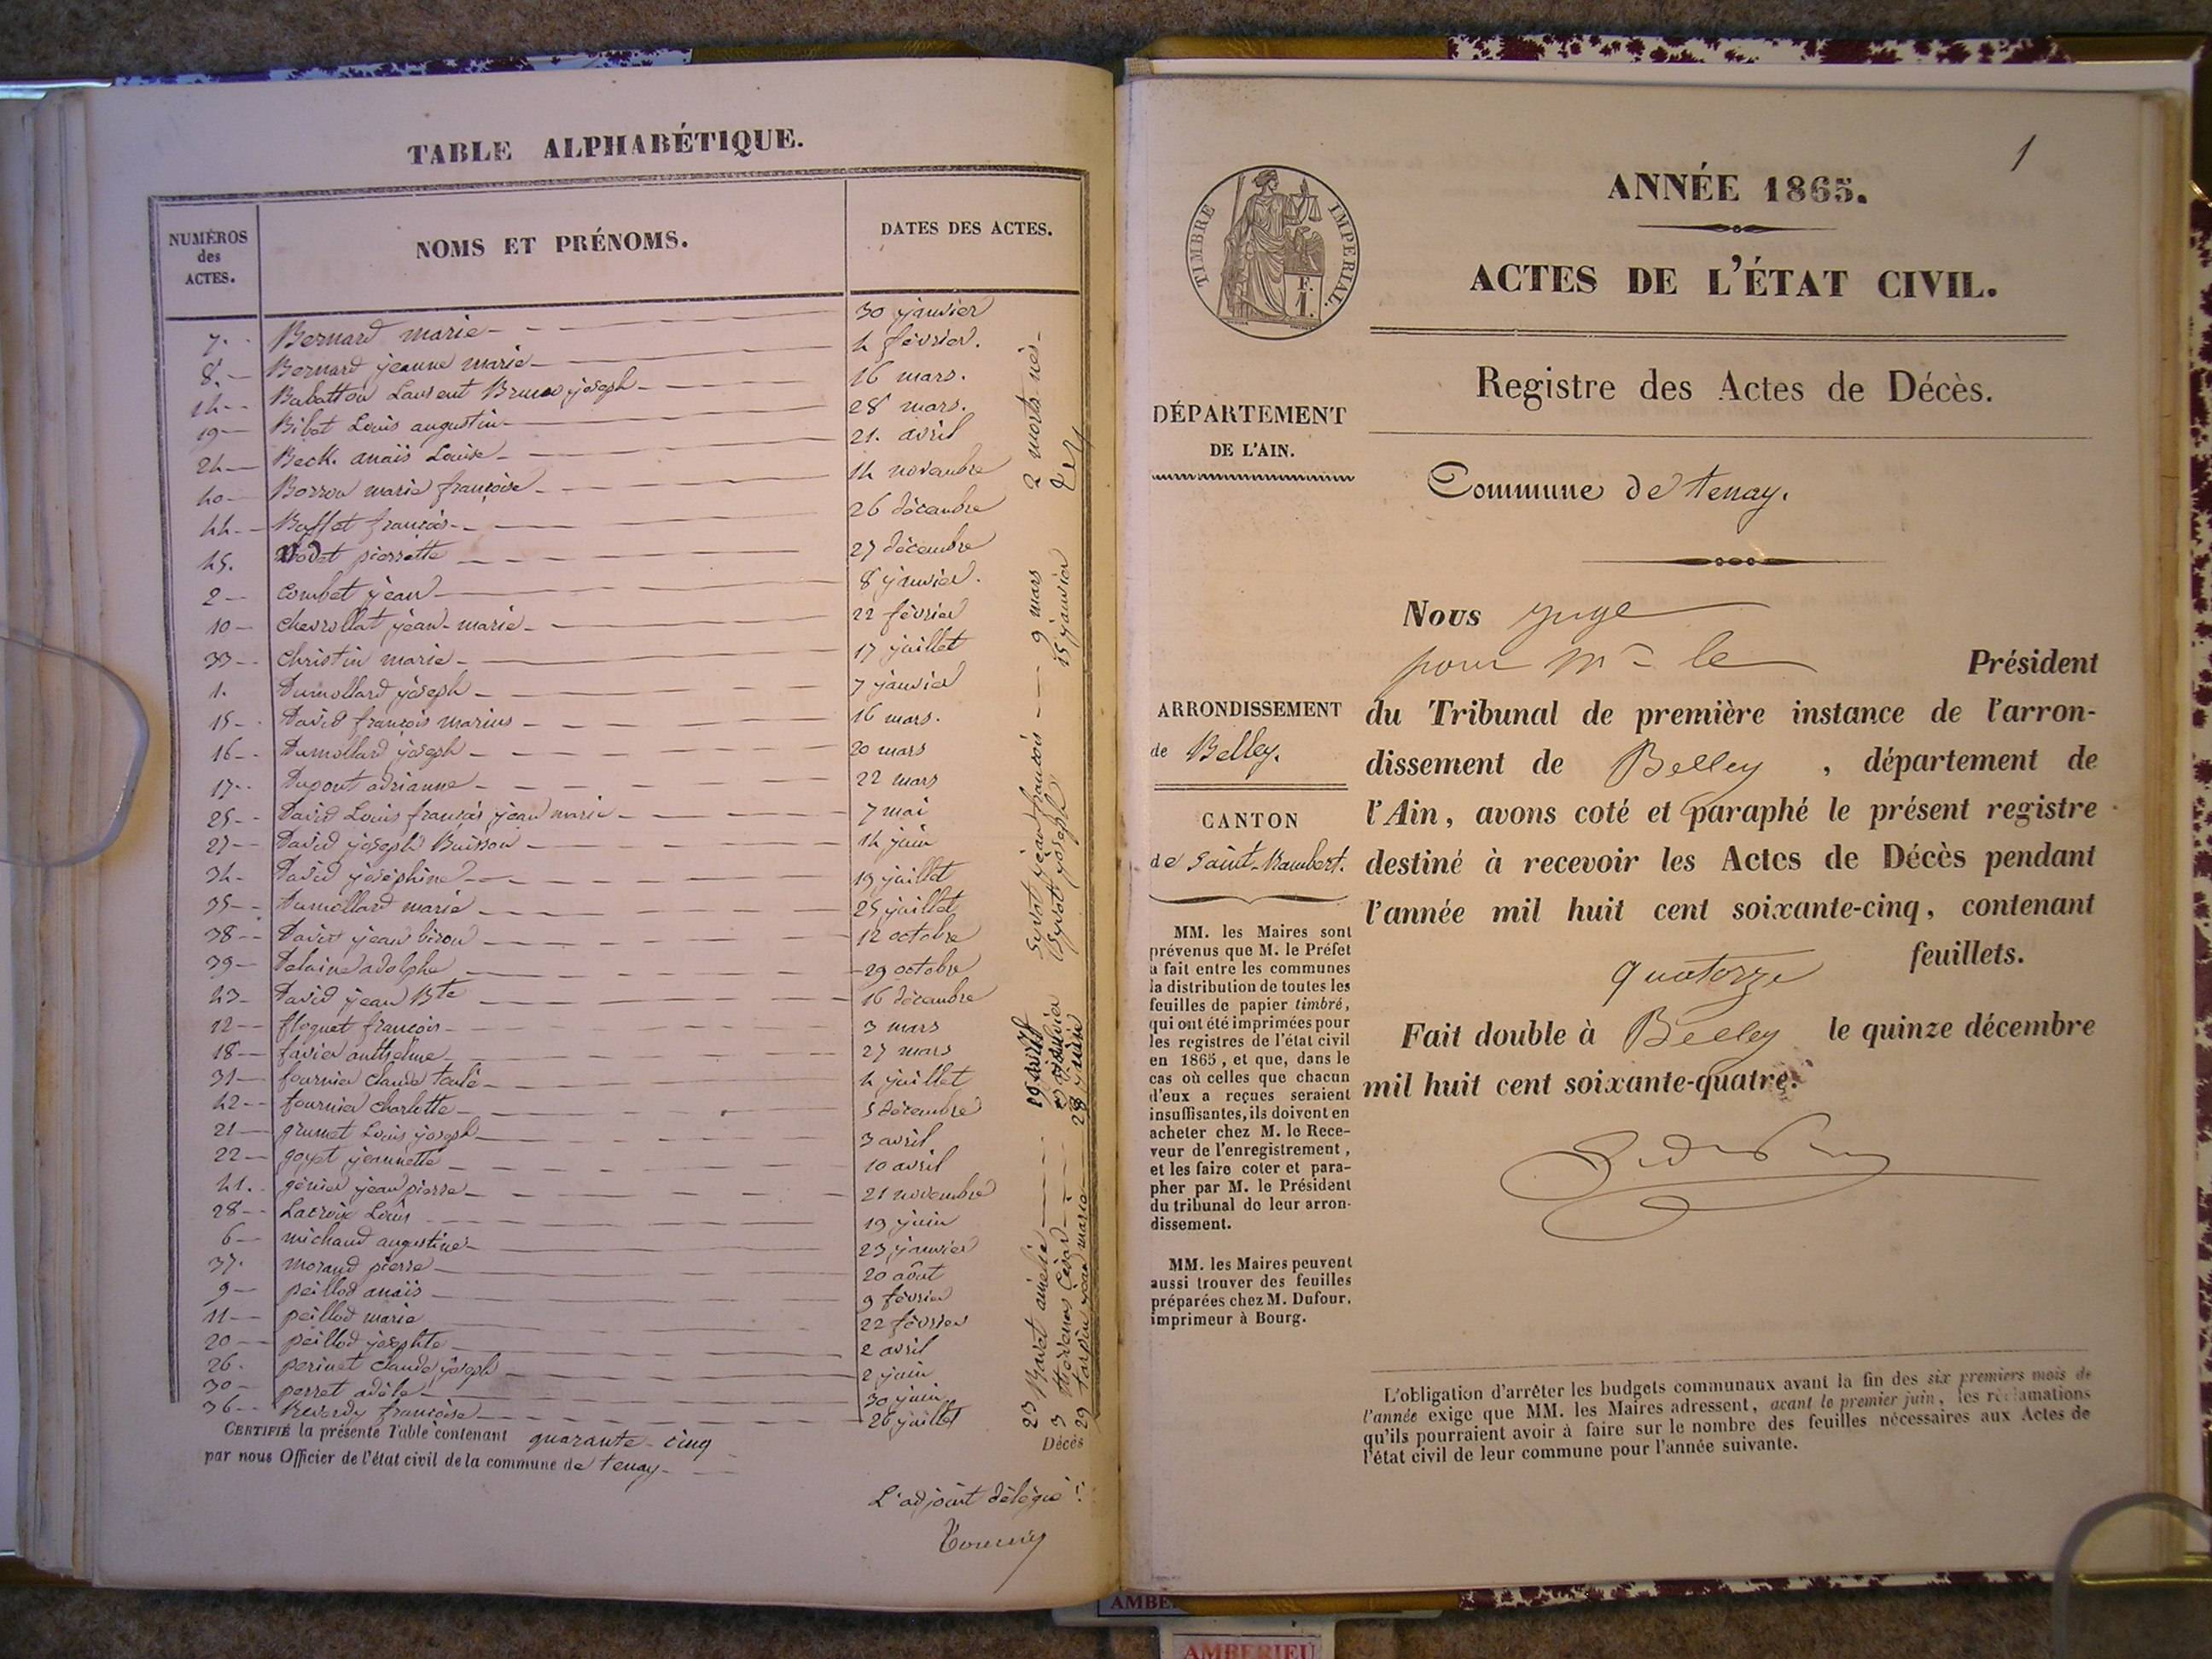 TABLE ALPHABÉTIQUE.
NUMÉROS des ACTES.
NOMS ET PRÉNOMS.
DATES DES ACTES.
7. Bernard marie 30 janvier
8. Bernard jeanne marie 4 février.
14 Babatton Laurent Bruno joseph 16 mars.
19 Bibet Louis augustin 28 mars.
24 Beck. anaïs Louise 21. avril
40 Borron marie françoise 14 novembre
44. Buffet françois 26 décembre
45. Bodet pierrette 27 décembre
2 Combet jean 8 janvier.
10 Chevrollat jean-marie 22 février
33 Christin marie 17 juillet
1. Dumollard joseph 7 janvier
15 David françois marius 16 mars.
16 Dumollard joseph 20 mars
17 Dupont adrianne 22 mars
25 David Louis françois jean marie 7 mai
27 David joseph Buisson 14 juin
34 David joséphine 19 juillet
35 Dumollard marie 25 juillet
38 David jean bison 12 octobre
39 Delaine adolphe 29 octobre
43 David jean Bte 16 décembre
12 floquet françois 3 mars
18 favier anthelme 27 mars
31 fournier claude toulé 4 juillet
42 fournier charlotte 5 décembre
21 grumet Louis joseph 3 avril
22 goyet jeannette 10 avril
41. génier jean pierre 21 novembre
28 Lacroix Louis 19 juin
6 michaud augustine 23 janvier
37. morand pierre 20 août
9 peillod anaïs 9 février
11 peillod marie 22 février
20 peillod josephte 2 avril
26. perinet claude joseph 2 juin
30 perret adèle 30 juin
36 Reverdy françoise 26 juillet
23 Ravet amélie 19 avril
3 César janvier
29 tarpin jean marie 28 juin
jean françois 9 mars
joseph 15 janvier
2 morts nés
CERTIFIÉ la présente Table contenant quarante-cinq Décès
par nous Officier de l'état civil de la commune de tenay
L'adjoint délégué:
1
TIMBRE IMPERIAL.
F.
1.
ANNÉE 1865.
ACTES DE L'ÉTAT CIVIL.
Registre des Actes de Décès.
DÉPARTEMENT
DE L'AIN.
Commune de tenay.
Nous juge
pour Mr le Président
du Tribunal de première instance de l'arron-
dissement de Belley, département de
l'Ain, avons coté et paraphé le présent registre
destiné à recevoir les Actes de Décès pendant
l'année mil huit cent soixante-cinq, contenant
quatorze feuillets.
Fait double à Belley le quinze décembre
mil huit cent soixante-quatre.
ARRONDISSEMENT
de Belley.
CANTON
de Saint-Rambert.
MM. les Maires sont
prévenus que M. le Préfet
a fait entre les communes
la distribution de toutes les
feuilles de papier timbré,
qui ont été imprimées pour
les registres de l'état civil
en 1865, et que, dans le
cas où celles que chacun
d'eux a reçues seraient
insuffisantes, ils doivent en
acheter chez M. le Rece-
veur de l'enregistrement,
et les faire coter et para-
pher par M. le Président
du tribunal de leur arron-
dissement.
MM. les Maires peuvent
aussi trouver des feuilles
préparées chez M. Dufour,
imprimeur à Bourg.
L'obligation d'arrêter les budgets communaux avant la fin des six premiers mois de
l'année exige que MM. les Maires adressent, avant le premier juin, les réclamations
qu'ils pourraient avoir à faire sur le nombre des feuilles nécessaires aux Actes de
l'état civil de leur commune pour l'année suivante.
AMBERIEU